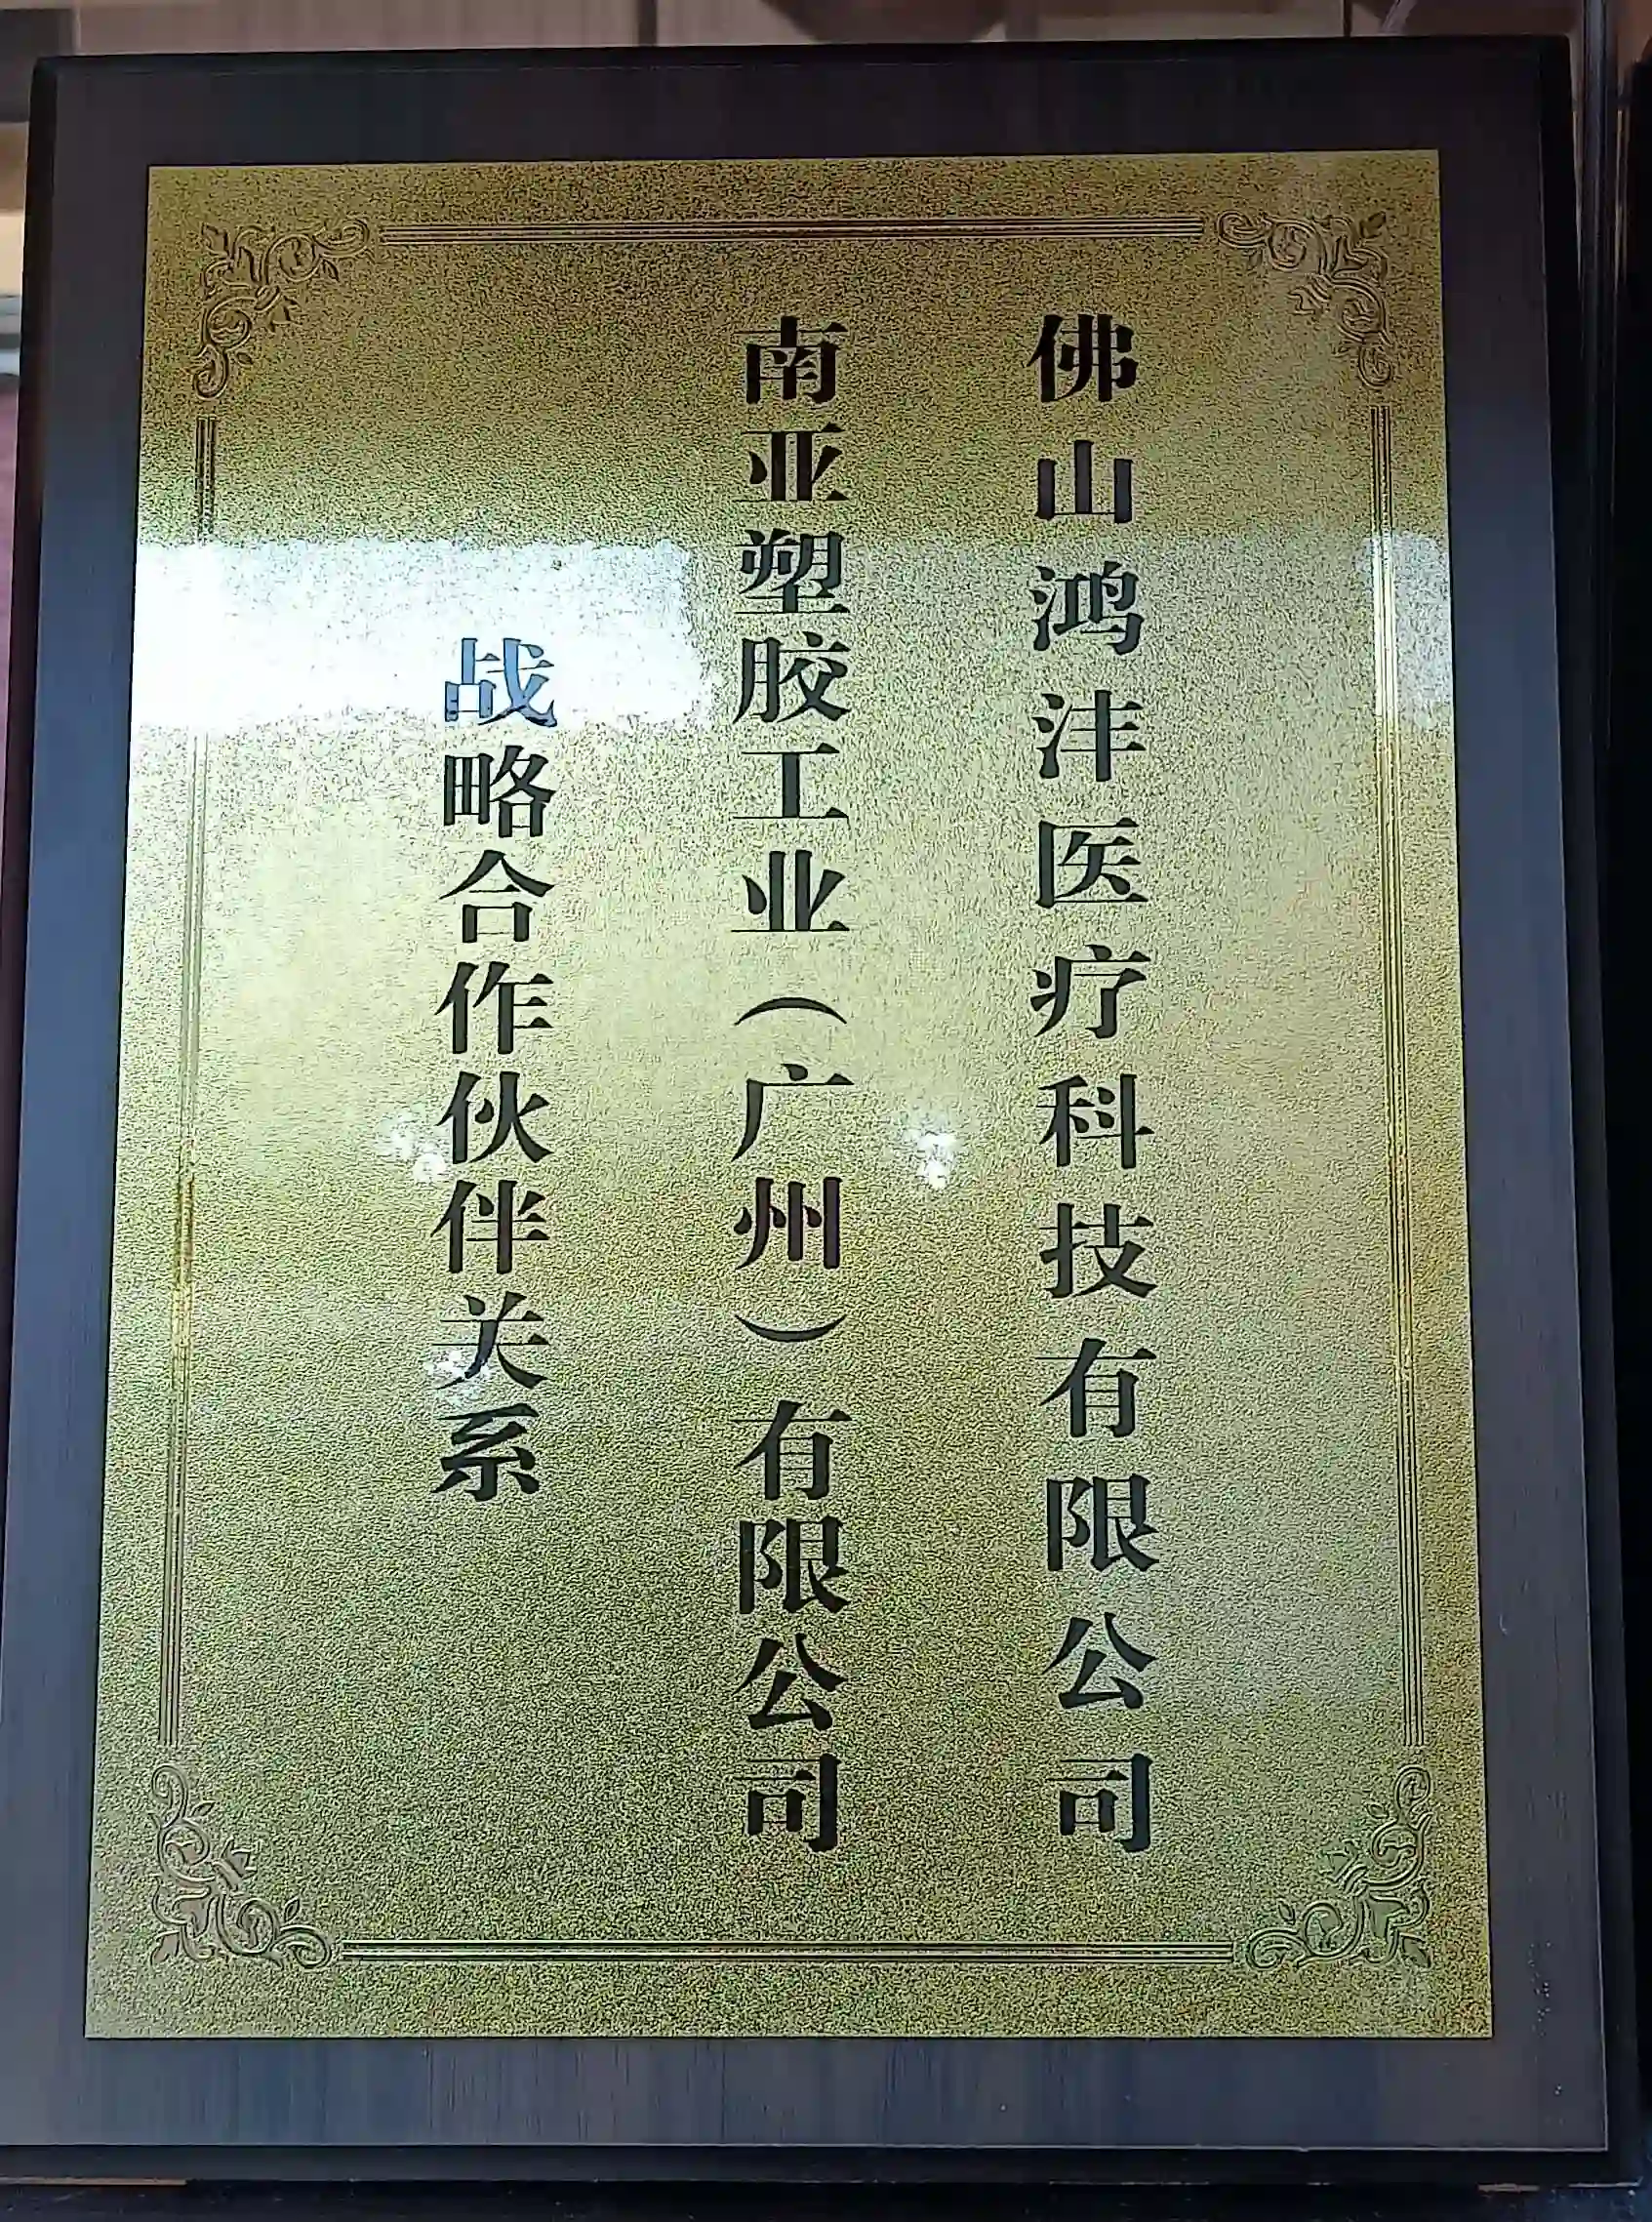 佛山鸿沣医疗科技有限公司
南亚塑胶工业（广州）有限公司
战略合作伙伴关系